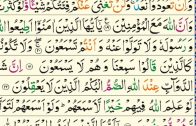 تَعُودُوا نَعُدْ وَلَن تُغْنِيَ عَنكُمْ فِئَتُكُمْ شَيْئًا وَلَوْ كَثُرَتْ
وَأَنَّ اللَّهَ مَعَ الْمُؤْمِنِينَ ۝١٩ يَا أَيُّهَا الَّذِينَ آمَنُوا أَطِيعُوا اللَّهَ
وَرَسُولَهُ وَلَا تَوَلَّوْا عَنْهُ وَأَنتُمْ تَسْمَعُونَ ۝٢٠ وَلَا تَكُونُوا
كَالَّذِينَ قَالُوا سَمِعْنَا وَهُمْ لَا يَسْمَعُونَ ۝٢١ إِنَّ شَرَّ
الدَّوَابِّ عِندَ اللَّهِ الصُّمُّ الْبُكْمُ الَّذِينَ لَا يَعْقِلُونَ ۝٢٢
وَلَوْ عَلِمَ اللَّهُ فِيهِمْ خَيْرًا لَّأَسْمَعَهُمْ وَلَوْ أَسْمَعَهُمْ لَتَوَلَّوا